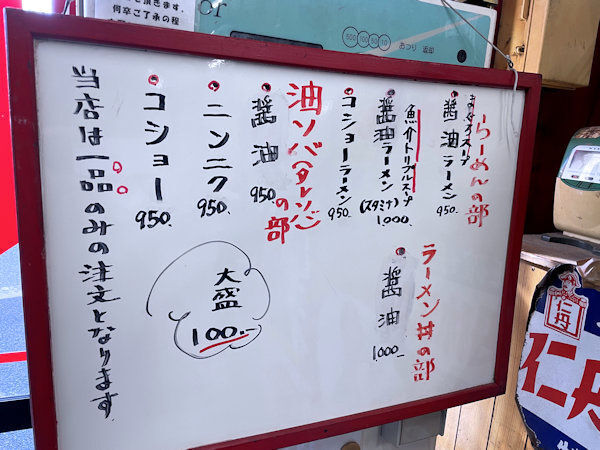 頂きます。
何卒ご了承の程
or
500 100 50 10
おつり 返却
らーめんの部
まのぐろスープ
醤油ラーメン 950.
魚介トリプルスープ
醤油ラーメン (スタミナ) 1000
コショーラーメン 950.
油ソバ(タレソバ)の部
醤油 950.
ニンニク 950.
コショー 950.
当店は一品のみの注文となります
ラーメン丼の部
醤油 1000-
大盛 100.-
仁丹
仁丹